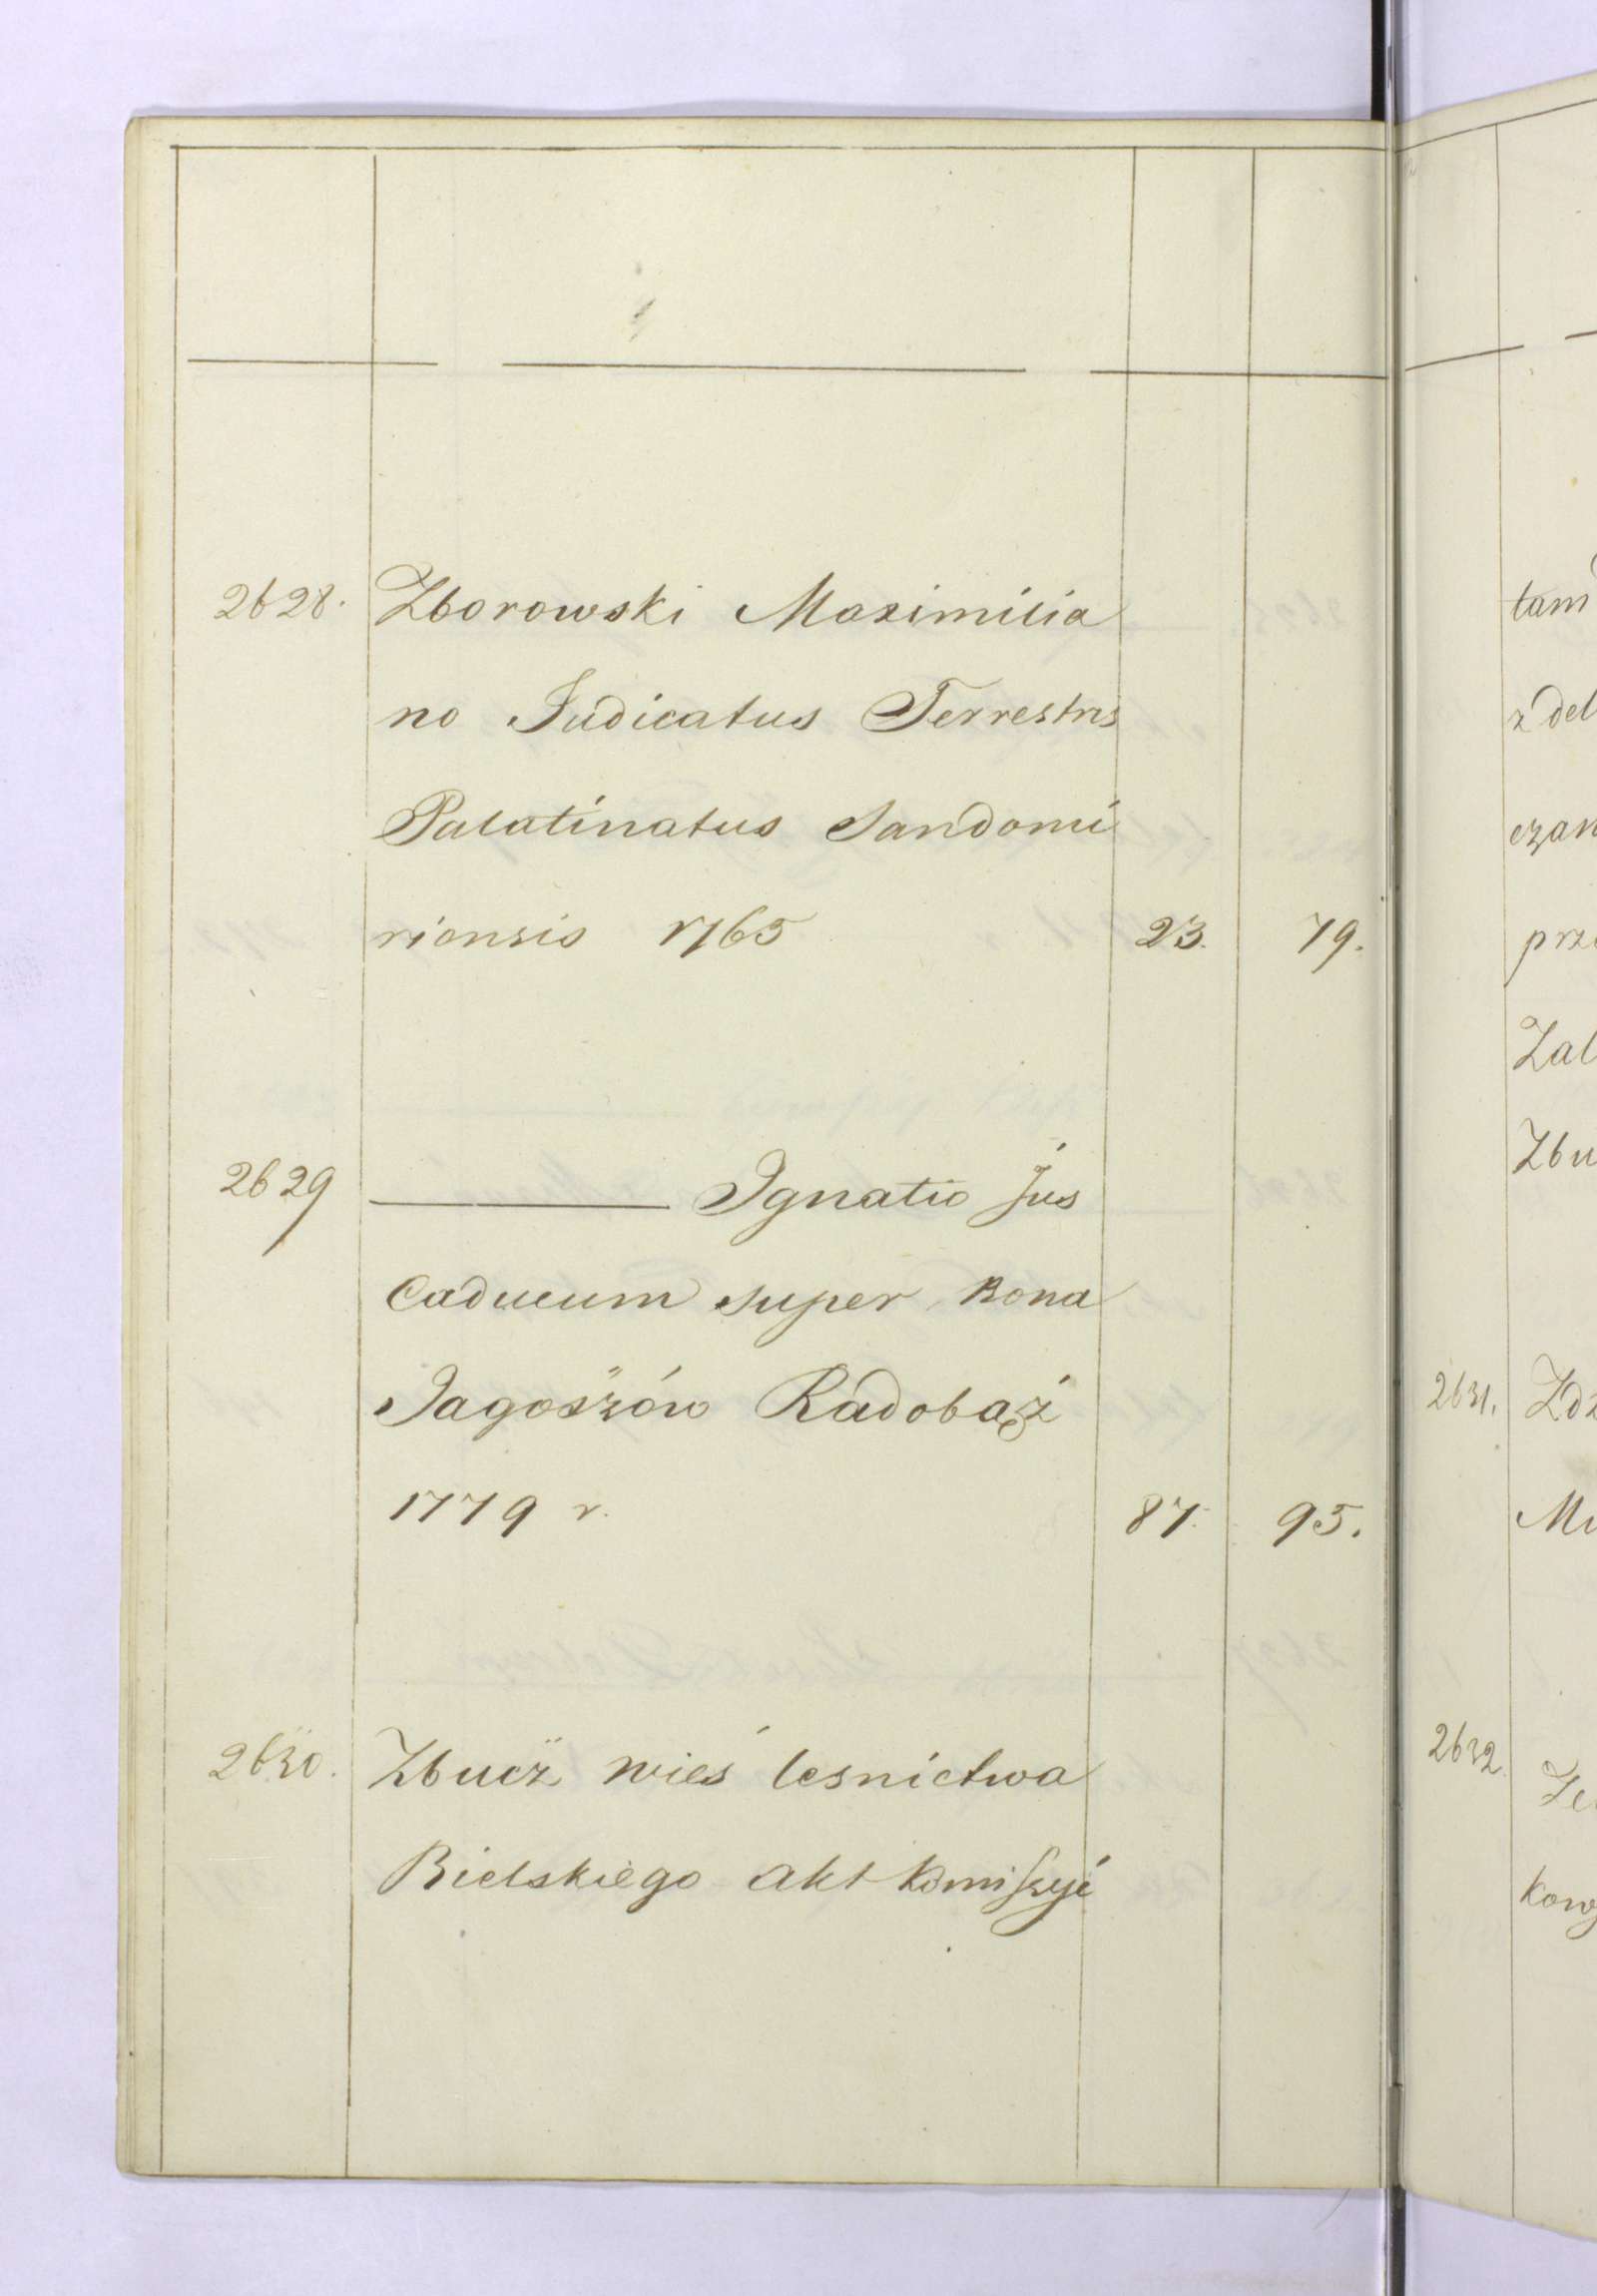 2628. Zborowski Maximilia
no Judicatus Terrestris
Palatinatus Sandomi
riensis 1765 23. 79.
2629 ——— Ignatio Jus
Caducum super Bona
1779 r. 87. 95.
2630. Zbucz wieś lesnictwa
Bielskiego akt Komissyi
tam
z del
czan
prze
Zal
Zbu
2631. Zdz
Mi
2632.
kowj